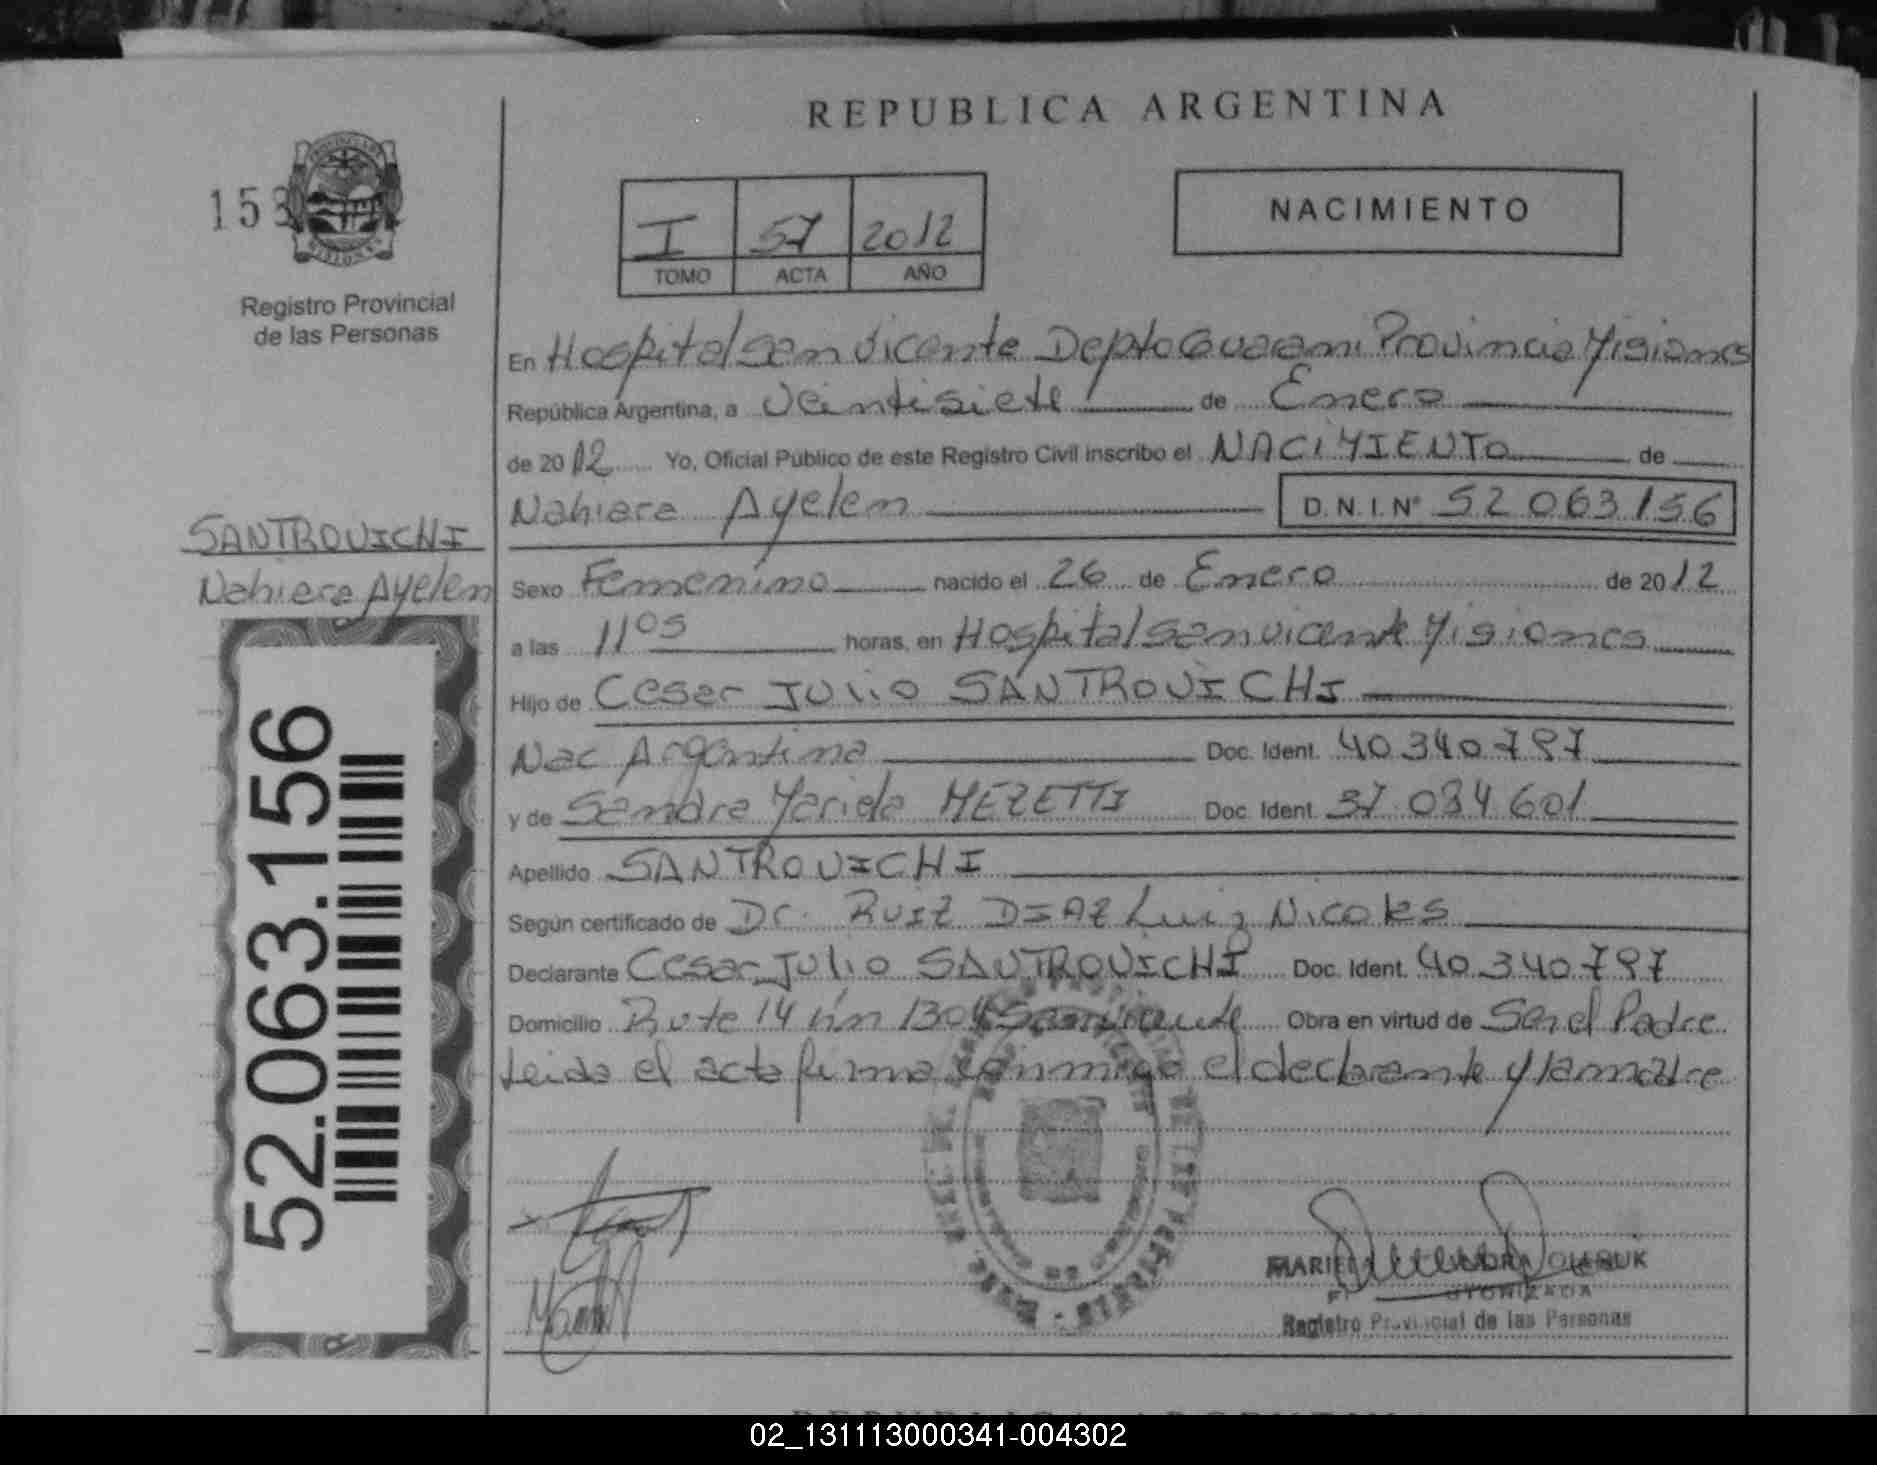 REPUBLICA ARGENTINA
153
Registro Provincial
de las Personas
I 57 2012
TOMO ACTA AÑO
NACIMIENTO
En Hospital San Vicente Depto Guarani Provincia Misiones
República Argentina, a Veintisiete de Enero
de 2012 Yo, Oficial Público de este Registro Civil inscribo el NACIMIENTO de
Nahiara Ayelen D.N.I.Nº 52 063 156
SANTROVICHI
Nahiara Ayelen
Sexo Femenino nacido el 26 de Enero de 2012
a las 11 05 horas, en Hospital San Vicente Misiones
Hijo de Cesar Julio SANTROVICHI
Nac Argentina Doc. Ident. 40 340 797
y de Sandra Mariela MEZETTI Doc. Ident. 37 084 601
Apellido SANTROVICHI
Según certificado de Dr. RUIZ DIAZ Luis Nicolas
Declarante Cesar Julio SANTROVICHI Doc. Ident. 40 340 797
Domicilio Ruta 14 km San Vicente Obra en virtud de Ser el Padre
Leida el acta firma conmigo el declarante y la madre
52.063.156
Registro Provincial de las Personas
02_131113000341-004302